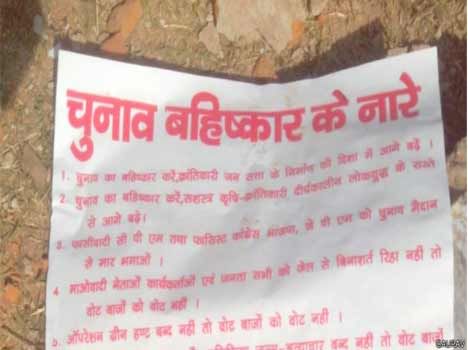 चुनाव बहिष्कार के नारे
1. चुनाव का बहिष्कार करें,क्रांतिकारी जन सत्ता के निर्माण की दिशा में आगे बढ़ें ।
2. चुनाव का बहिष्कार करें,सशस्त्र कृषि-क्रांतिकारी दीर्घकालीन लोकयुद्ध के रास्ते
से आगे बढ़ें।
3. फासीवादी सी पी एम तथा फासिस्ट कांग्रेस भाजपा, जे पी एम को चुनाव मैदान
से मार भगाओ ।
4 माओवादी नेताओं कार्यकर्ताओं एवं जनता सभी को जेल से बिनाशर्त रिहा नहीं तो
वोट बाजों को वोट नहीं ।
5. ऑपरेशन ग्रीन हण्ट बन्द नहीं तो वोट बाजों को वोट नहीं ।
बन्द नहीं तो वोट बाजों
SALRAV